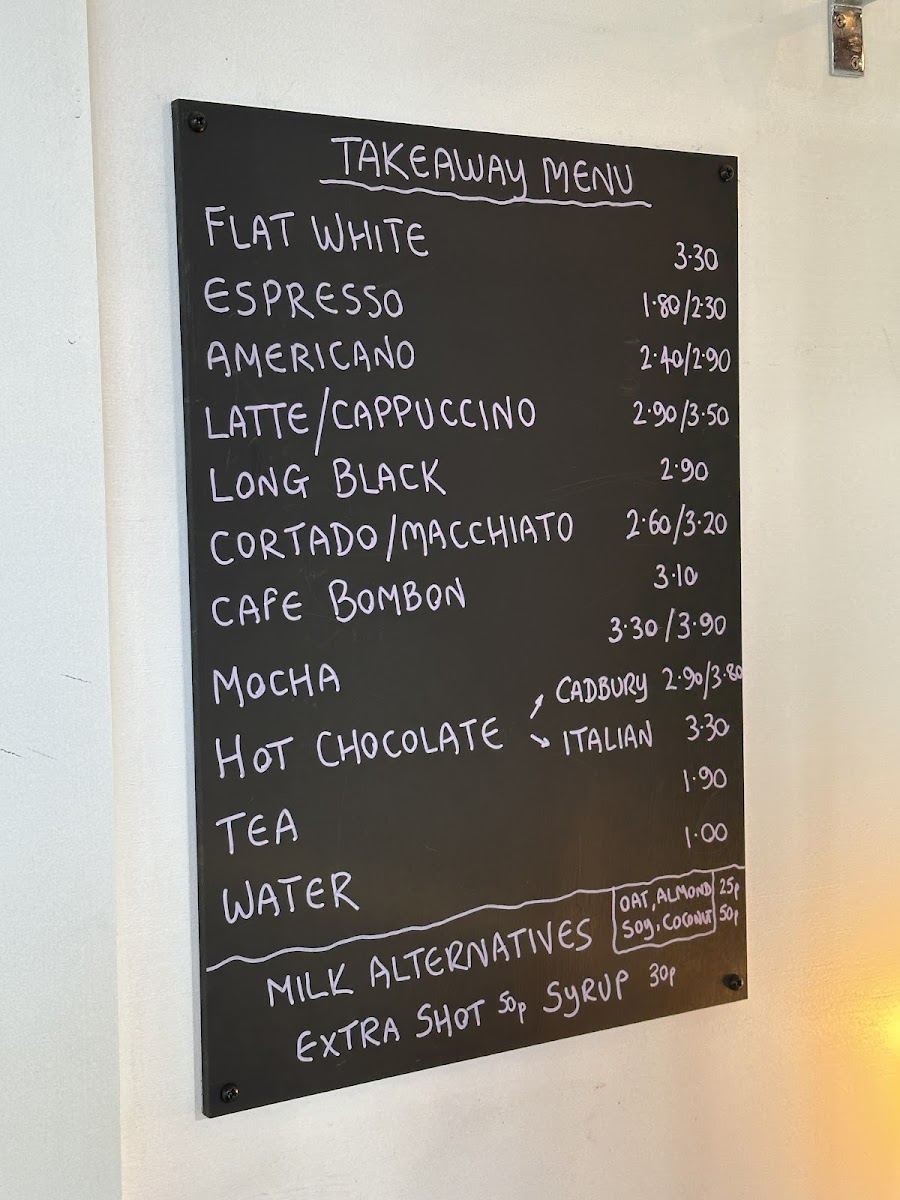 TAKEAWAY MENU
FLAT WHITE 3.30
ESPRESSO 1.80/2.30
AMERICANO 2.40/2.90
LATTE/CAPPUCCINO 2.90/3.50
LONG BLACK 2.90
CORTADO/MACCHIATO 2.60/3.20
CAFE BOMBON 3.10
MOCHA 3.30/3.90
HOT CHOCOLATE ↗ CADBURY 2.90/3.80
↘ ITALIAN 3.30
TEA 1.90
WATER 1.00
MILK ALTERNATIVES OAT, ALMOND 25p
SOY, COCONUT 50p
EXTRA SHOT 50p SYRUP 30p